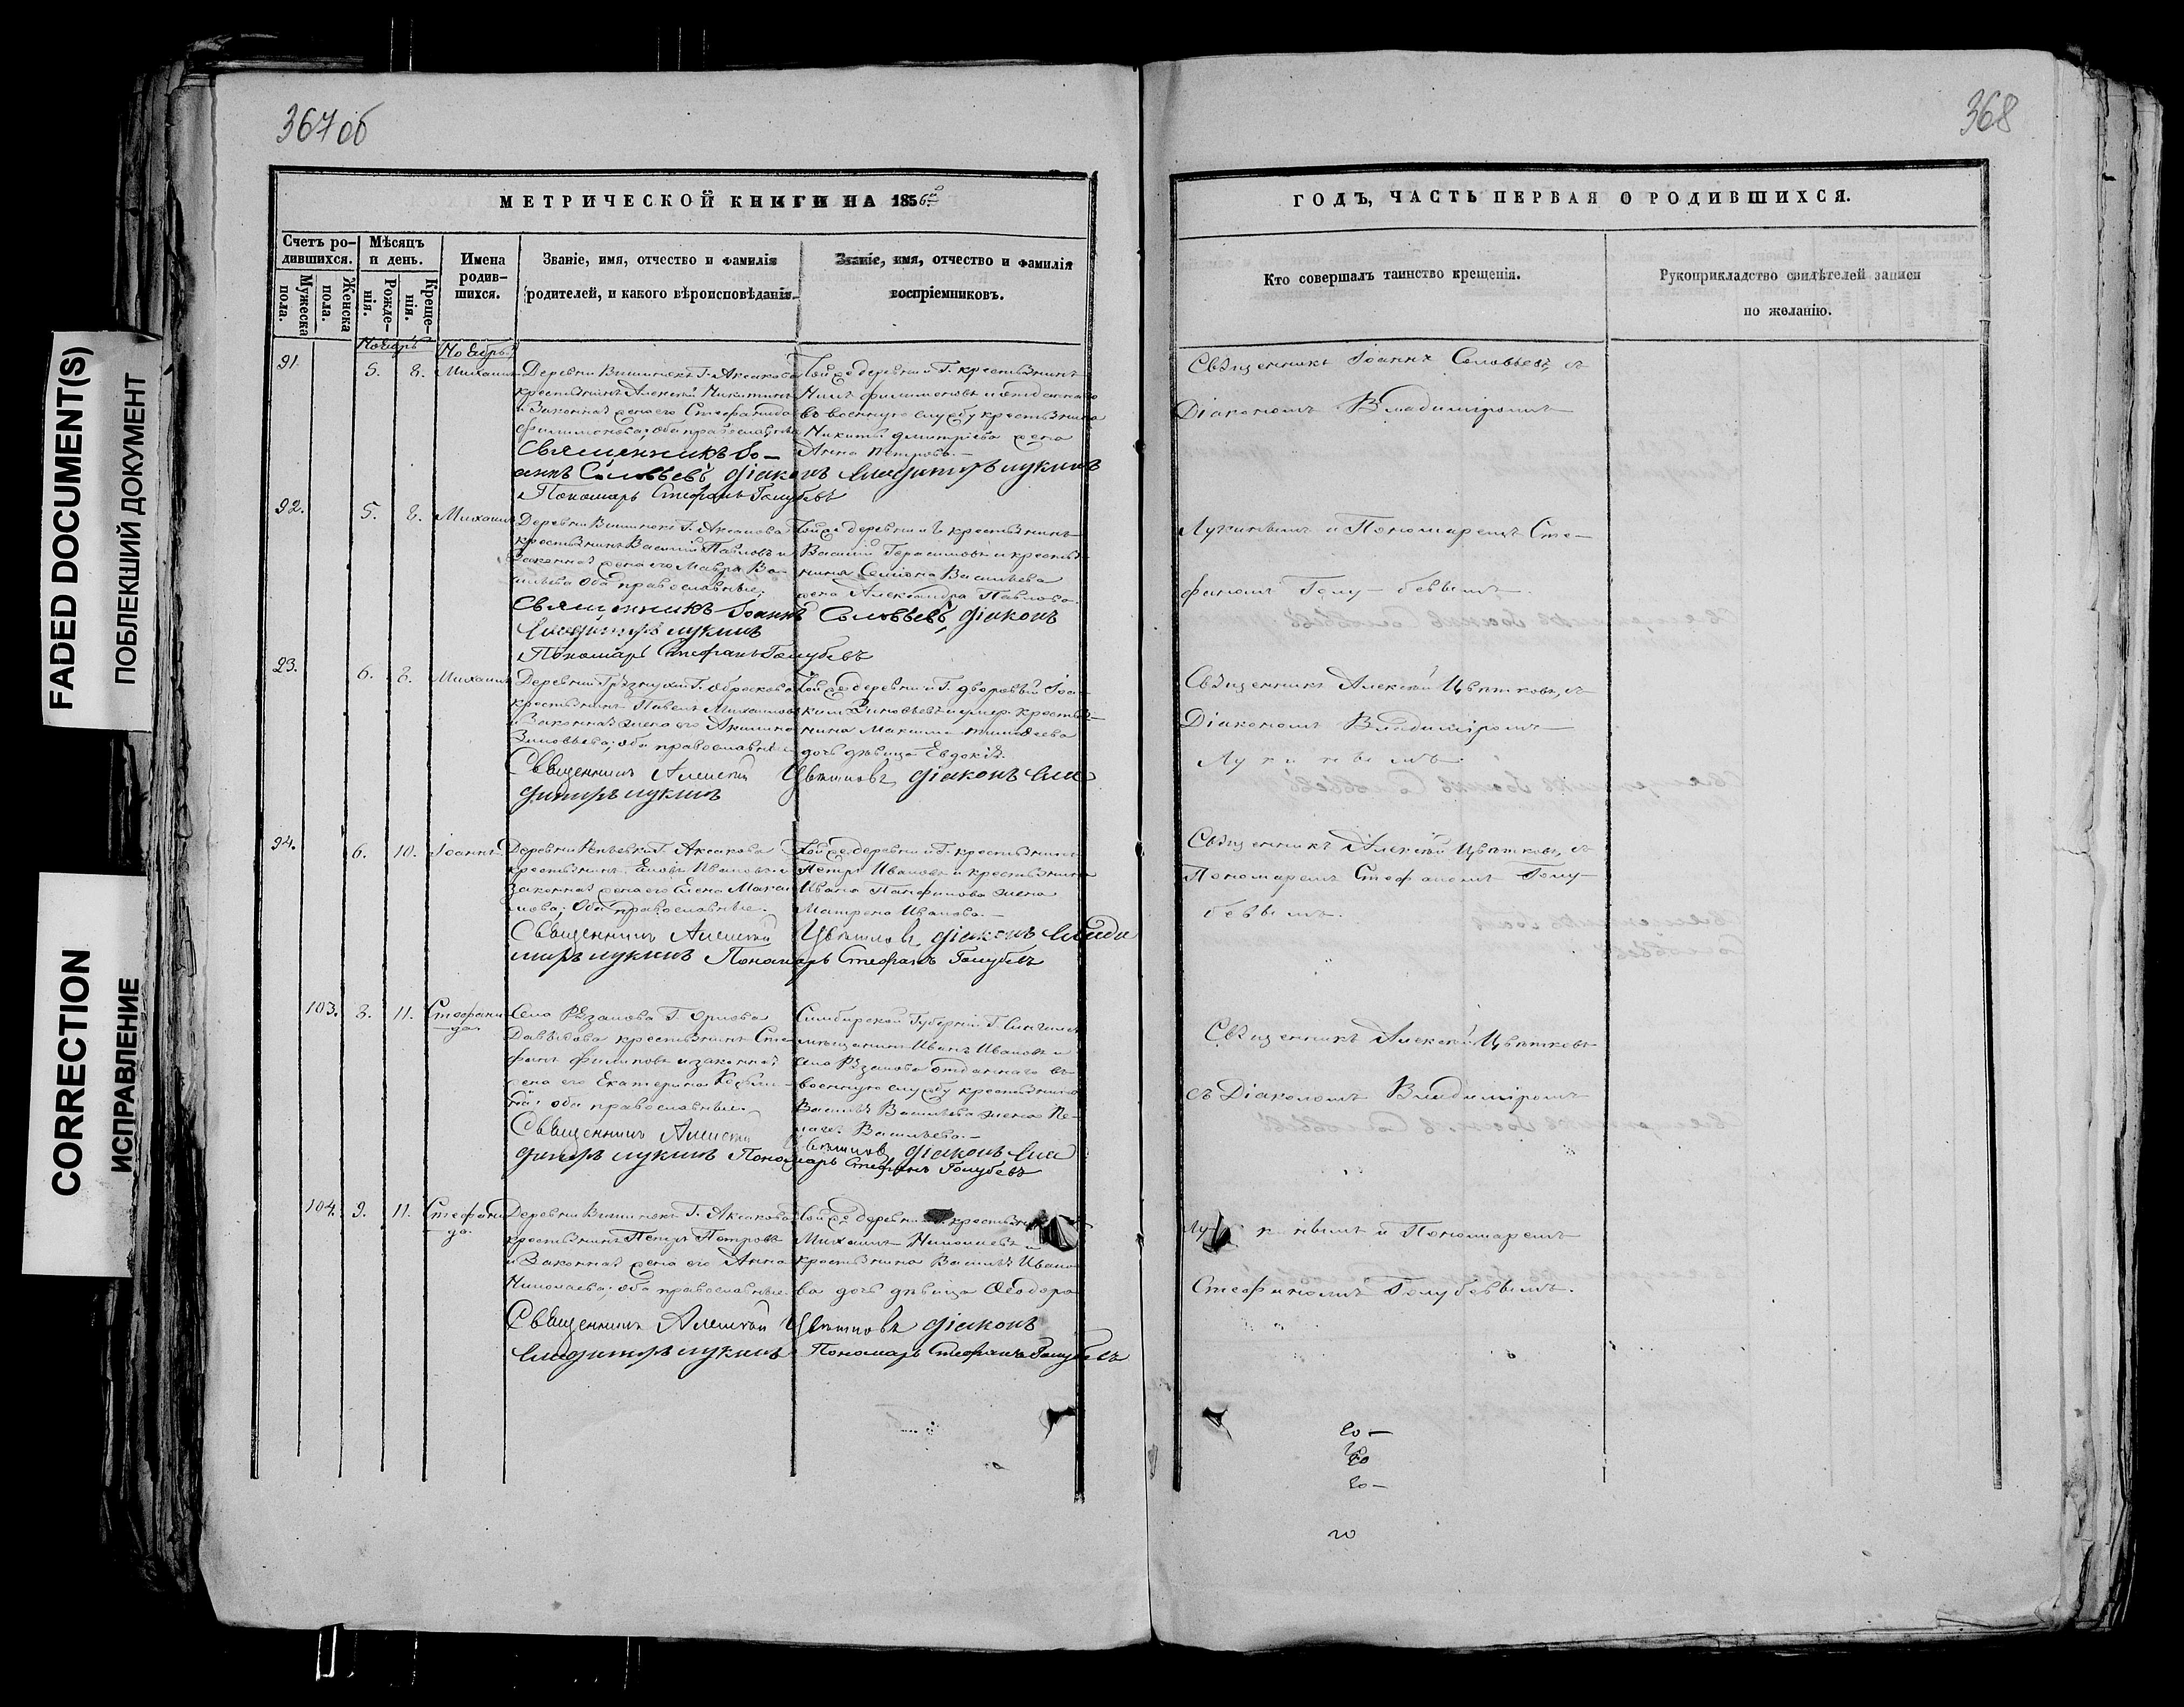 367 об
368
МЕТРИЧЕСКОЙ КНИГИ НА 1856й
ГОДЪ, ЧАСТЬ ПЕРВАЯ О РОДИВШИХСЯ.
Счетъ ро-
дившихся.
Мужеска
пола.
Женска
пола.
Мѣсяцъ
и день.
Рожде-
нія.
Креще-
нія.
Имена
родив-
шихся.
Званіе, имя, отчество и фамилія
родителей, и какого вѣроисповѣданія.
Званіе, имя, отчество и фамилія
воспріемниковъ.
Кто совершалъ таинство крещенія.
Рукоприкладство свидѣтелей записи
по желанію.
Ноябрь
Ноябрь
91. 5. 8. Михаилъ
Деревни Вишнекъ Г. Аксакова
крестьянинъ Алексѣй Никитинъ
и законная жена его Стефанида
Филимонова; оба православные
Той же деревни и Г. крестьянинъ
Нилъ Филимоновъ и отданнаго
въ военную службу крестьянина
Никиты Дмитріева жена
Анна Петрова.—
Священникъ Іо-
аннъ Соловьевъ, діаконъ Владимиръ Лукинъ
Пономарь Стефанъ Голубевъ
Священникъ Іоаннъ Соловьевъ, съ
Діакономъ Владиміромъ
92. 5. 8. Михаилъ
Деревни Вишнекъ Г. Аксакова
крестьянинъ Василій Павловъ и
законная жена его Мавра Ва-
сильева оба православные;
Той же деревни и Г. крестьянинъ
Василій Герасимовъ и крестья-
нина Семіона Васильева
жена Александра Павлова.
Священникъ Іоаннъ Соловьевъ, діаконъ
Владимиръ Лукинъ
Пономарь Стефанъ Голубевъ
Лукинымъ и Пономаремъ Сте-
фаномъ Голу-бевымъ.
93. 6. 8. Михаилъ
Деревни Грязнухи Г. Обрескова
крестьянинъ Павелъ Михайловъ
и законная жена его Акилина
Зиновьева; оба православные
Той же деревни и Г. дворовый Іоа-
кимъ Зиновьевъ и умер. крестья-
нина Максима Тимофеева
дочь дѣвица Евдокія.
Священникъ Алексѣй Цвѣтковъ, діаконъ Вла
димиръ Лукинъ
Священникъ Алексѣй Цвѣтковъ, съ
Діакономъ Владиміромъ
Лукинымъ.
94. 6. 10. Іоаннъ.
Деревни Репьевки Г. Аксакова
крестьянинъ Еновъ Ивановъ и
законная жена его Елена Макси
мова; оба православные.
Той же деревни и Г. крестьянинъ
Петръ Ивановъ и крестьянина
Ивана Панфилова жена
Матрена Иванова.—
Священникъ Алексѣй Цвѣтковъ, діаконъ Влади
миръ Лукинъ Пономарь Стефанъ Голубевъ
Священникъ Алексѣй Цвѣтковъ, съ
Пономаремъ Стефаномъ Голу-
бевымъ.
103. 8. 11. Стефани
-да.
Село Рязанова Г. Орлова
Давыдова крестьянинъ Сте
фанъ Филиповъ и законная
жена его Екатерина
оба православные.
Симбирской Губерніи Г. Сенгилея
мѣщанинъ Иванъ Ивановъ и
села Рязанова отданнаго въ
военную службу крестьянина
Василія Васильева жена Пе-
лагея Васильева.—
Священникъ Алексѣй Цвѣтковъ діаконъ Вла
димиръ Лукинъ Пономарь Стефанъ Голубевъ
Священникъ Алексѣй Цвѣтковъ
съ Діакономъ Владиміромъ
104. 9. 11. Стефани
-да.
Деревни Вишнекъ Г. Аксакова
крестьянинъ Петръ Петровъ
и законная жена его Анна
Николаева; оба православные.
Той же деревни крестьянинъ
Михаилъ Николаевъ и
крестьянина Василія Ивано
ва дочь дѣвица Ѳеодора
Священникъ Алексѣй Цвѣтковъ діаконъ
Владимиръ Лукинъ Пономарь Стефанъ Голубевъ
Лукинымъ и Пономаремъ
Стефаномъ Голубевымъ.
20 —
20
20 —
20
FADED DOCUMENT(S)
ПОБЛЕКШИЙ ДОКУМЕНТ
CORRECTION
ИСПРАВЛЕНИЕ